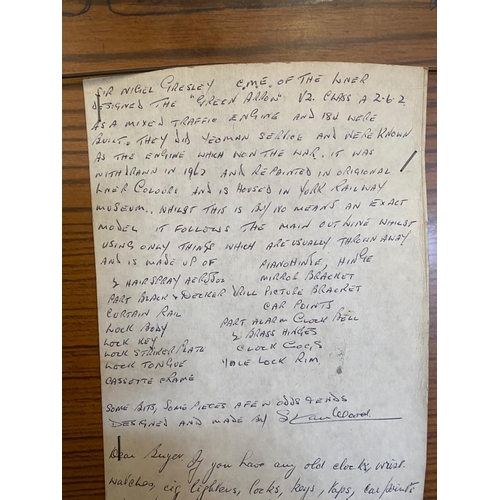 SIR NIGEL GRESLEY C.M.E. OF THE LNER
DESIGNED THE "GREEN ARROW" V2. CLASS A 2-6-2
AS A MIXED TRAFFIC ENGINE AND 184 WERE
BUILT. THEY DID YEOMAN SERVICE AND WERE KNOWN
AS THE ENGINE WHICH WON THE WAR. IT WAS
WITHDRAWN IN 1962 AND REPAINTED IN ORIGIONAL
LNER COLOURS AND IS HOUSED IN YORK RAILWAY
MUSEUM. WHILST THIS IS BY NO MEANS AN EXACT
MODEL IT FOLLOWS THE MAIN OUTLINE WHILST
USING ONLY THINGS WHICH ARE USUALLY THROWN AWAY
AND IS MADE UP OF PIANOHINGE, HINGE
2 HAIRSPRAY AEROSOL MIRROR BRACKET
PART BLACK & DECKER DRILL PICTURE BRACKET
CURTAIN RAIL CAR POINTS
LOCK BODY PART ALARM CLOCK BELL
LOCK KEY 2 BRASS HINGES
LOCK STRIKER PLATE CLOCK COGS
LOCK TONGUE YALE LOCK RIM
CASSETTE FRAME
SOME BITS, SOME PIECES A FEW ODDS & ENDS
DESIGNED AND MADE BY Stan Ward
Dear Buyer If you have any old clocks, wrist
watches, cig lighters, locks, keys, taps, car points